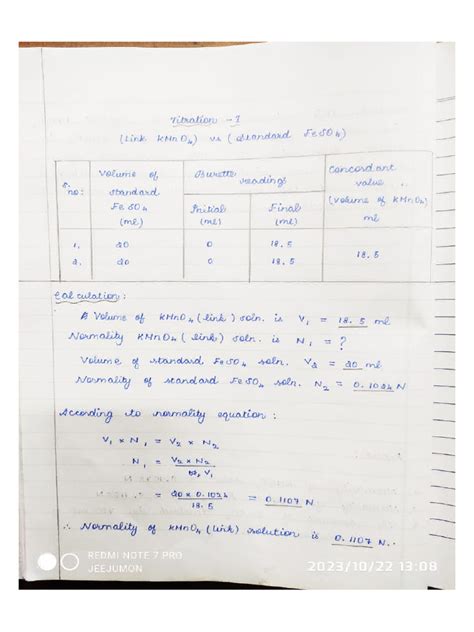 Titration - I
(Link KMnO4) vs (standard FeSO4)
S. no:
Volume of standard FeSO4 (ml)
Burette readings
Initial (ml)
Final (ml)
Concordant value (volume of KMnO4) ml
1. 20 0 18.5
2. 20 0 18.5
18.5
Calculation:
Volume of KMnO4 (link) soln. is V1 = 18.5 ml
Normality KMnO4 (link) soln. is N1 = ?
Volume of standard FeSO4 soln. V2 = 20 ml
Normality of standard FeSO4 soln. N2 = 0.1024 N
According to normality equation :
V1 × N1 = V2 × N2
N1 = V2 × N2
V1
= 20 × 0.1024 = 0.1107 N
18.5
∴ Normality of KMnO4 (link) solution is 0.1107 N.
REDMI NOTE 7 PRO
JEEJUMON
2023/10/22 13:08